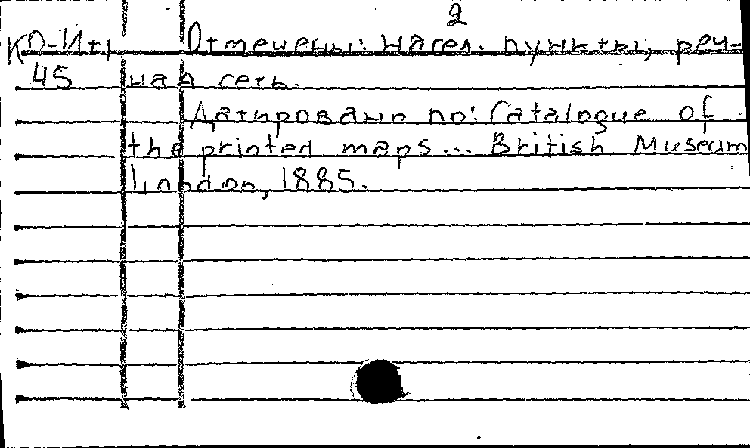 2
КО-Ит Отмечены: насел. пункты, реч-
45 ная сеть.
Датировано по: Catalogue of
the printed maps... British Museum
London, 1885.